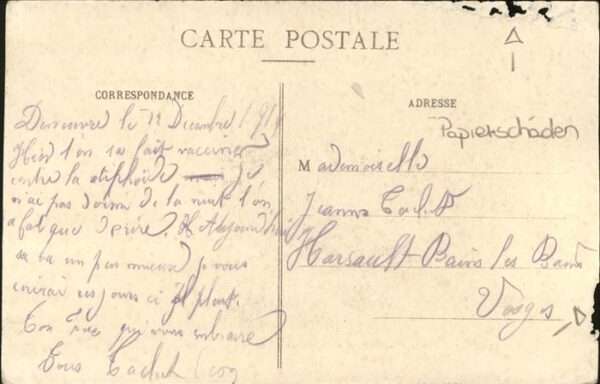 CARTE POSTALE
CORRESPONDANCE
le 12 Decembre 191
Hier l'on sa fait vacciner
contre la tiphoide Je
n'ae pas dormi de la nuit l'on
a fait que Aujourd'hui
sa va un peu mieux je vous
ces jours ci Il pleut.
Ton qui vous embrasse
Tous
ADRESSE
Papierschäden
Mademoiselle
Jeanne
Harsault Bains les Bains
Vosges